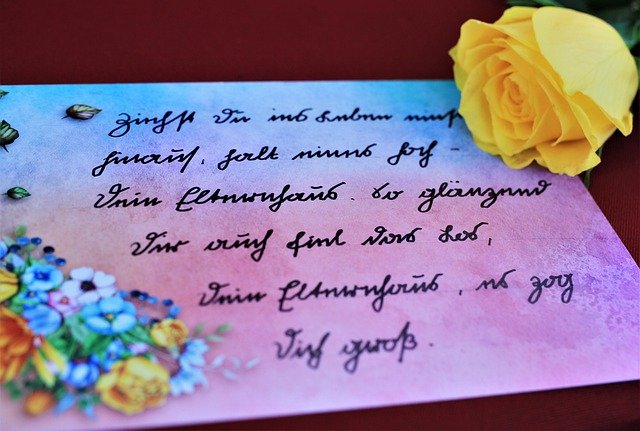 Ziehst Du ins Leben einst
hinaus, halt eines hoch –
Dein Elternhaus. So glänzend
Dir auch fiel das Los,
Dein Elternhaus, es zog
Dich groß.